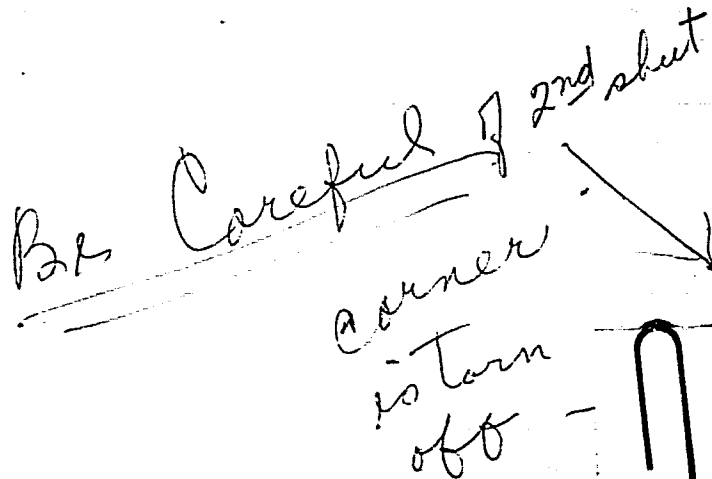 Be Careful of 2nd sheet
corner
is torn
off -